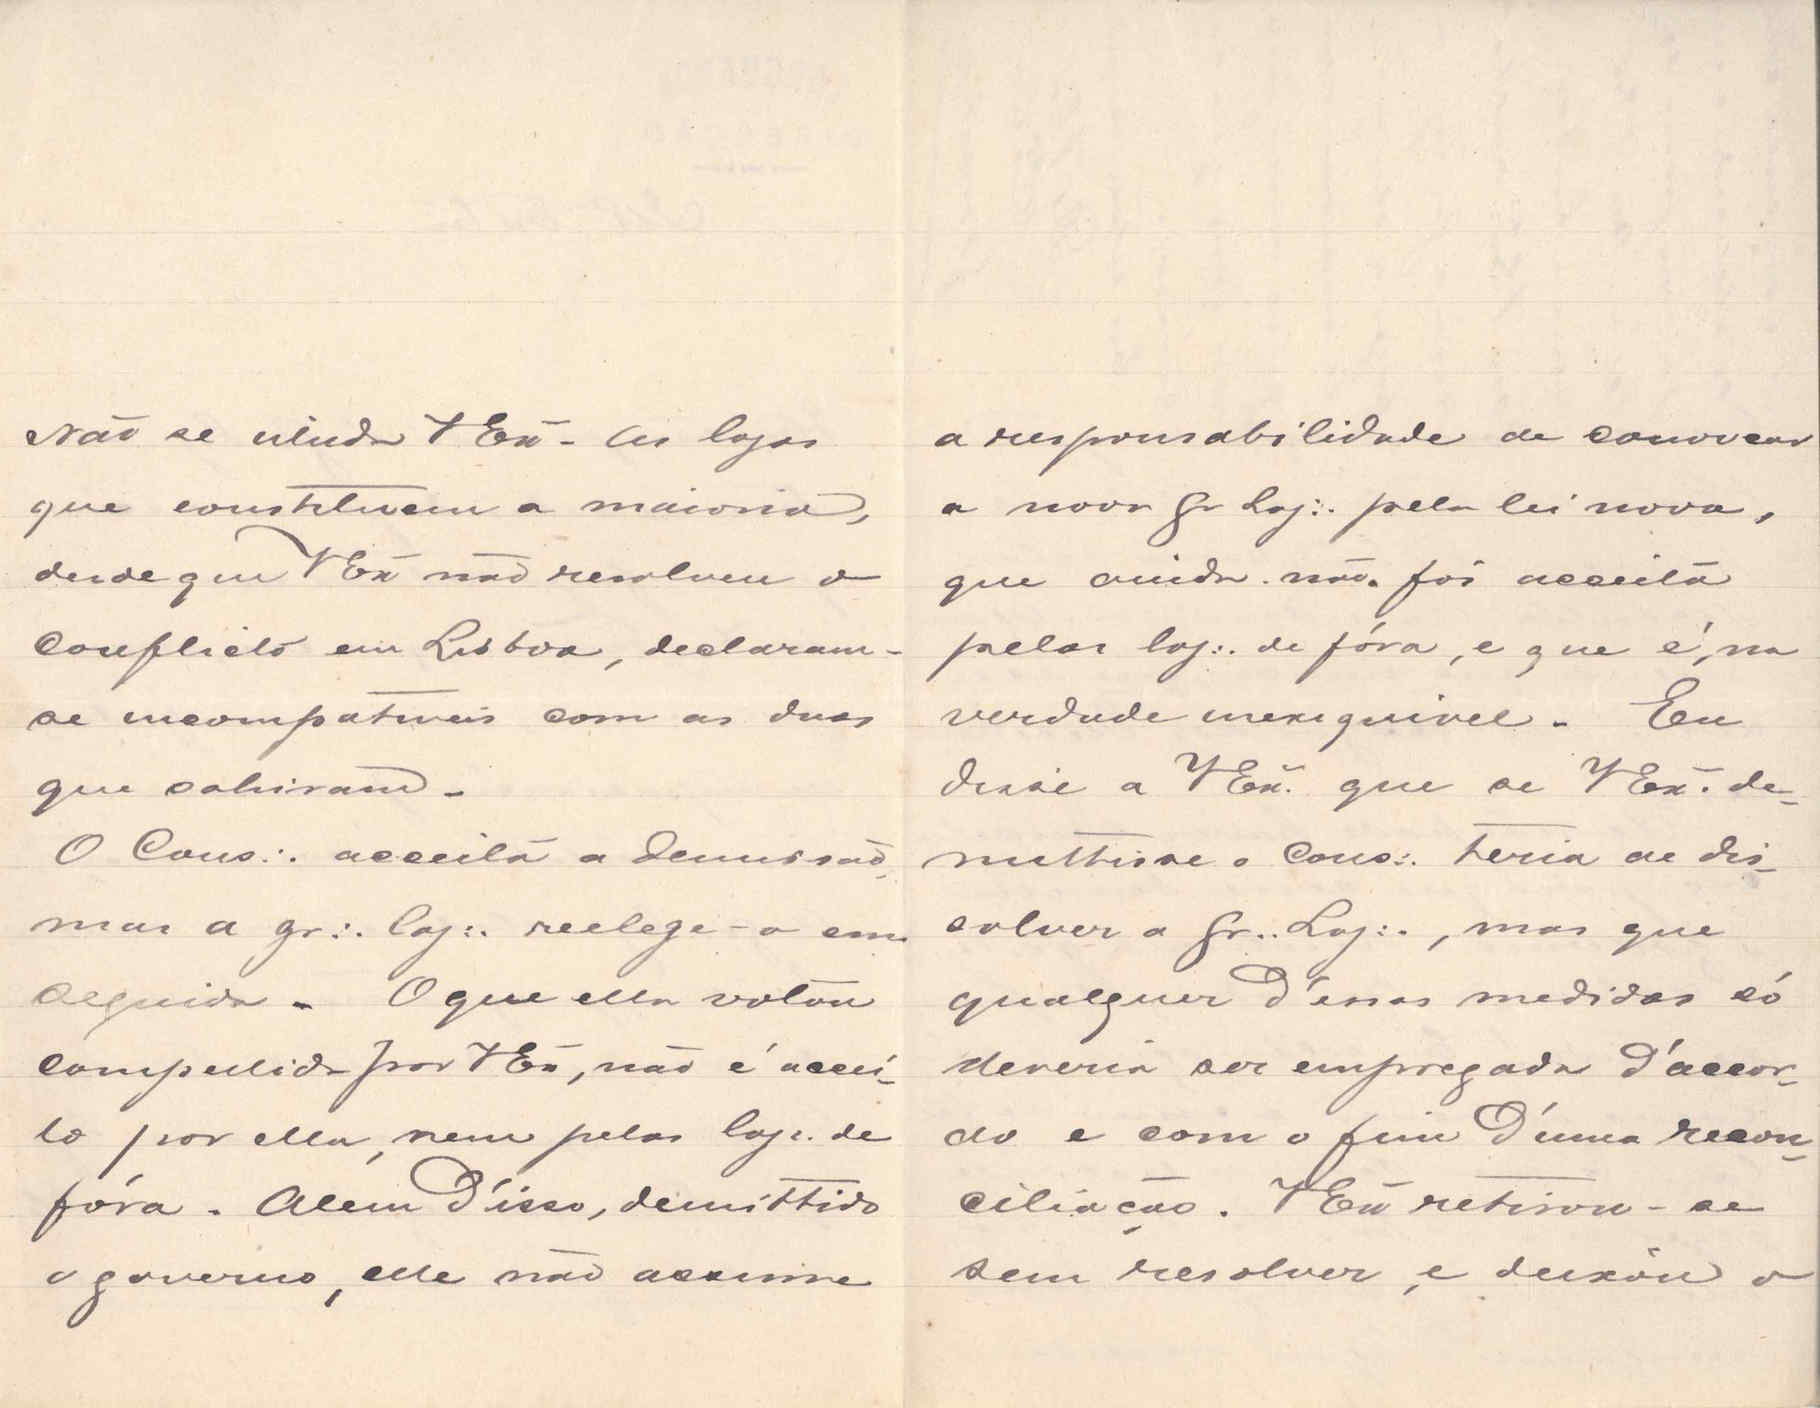 Não se illuda V Exª. As lojas
que constituem a maioria,
desde que V Exª não resolveu o
conflicto em Lisboa, declaram-
se incompativeis com as duas
que sahiram.
O Cons∴ acceita a demissão,
mas a gr∴ loj∴ reelege-o em
seguida. O que ella votou
compellida por V Exª, não é accei-
to por ella, nem pelas loj∴ de
fóra. Alem d'isso, demittido
o governo, elle não assume
a responsabilidade de convocar
a nova Gr Loj∴ pela lei nova,
que ainda não foi acceita
pelas loj∴ de fóra, e que é, na
verdade inexequivel. Eu
disse a V Exª. que se V Exª. de-
mittisse o Cons∴ teria de dis-
solver a Gr∴ Loj∴, mas que
qualquer d'essas medidas só
deveria ser empregada d'accor-
do e com o fim d'uma recon-
ciliação. V Exª retirou-se
sem resolver, e deixou o